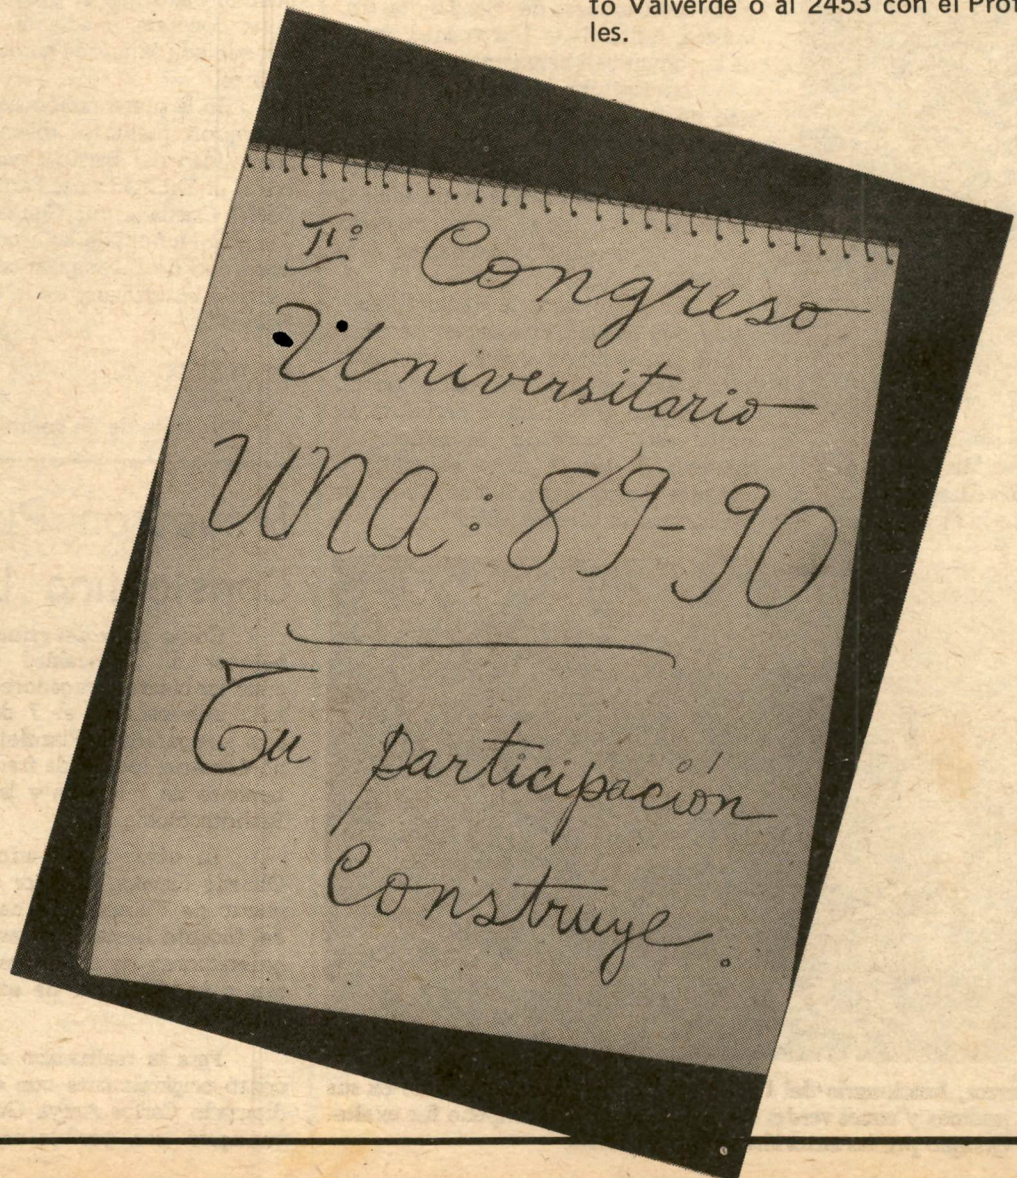 to Valverde o al 2453 con el Prof
les.
II° Congreso
Universitario
UNA: 89-90
Tu participación
Construye.